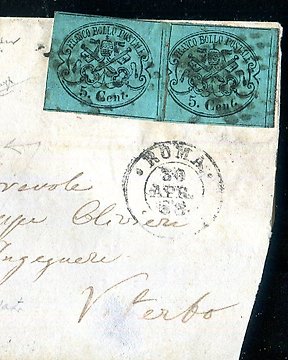 FRANCO BOLLO POSTALE
5. Cent.
FRANCO BOLLO POSTALE
5. Cent.
ROMA
30
APR.
68
Olivieri
Ingegnere
Viterbo